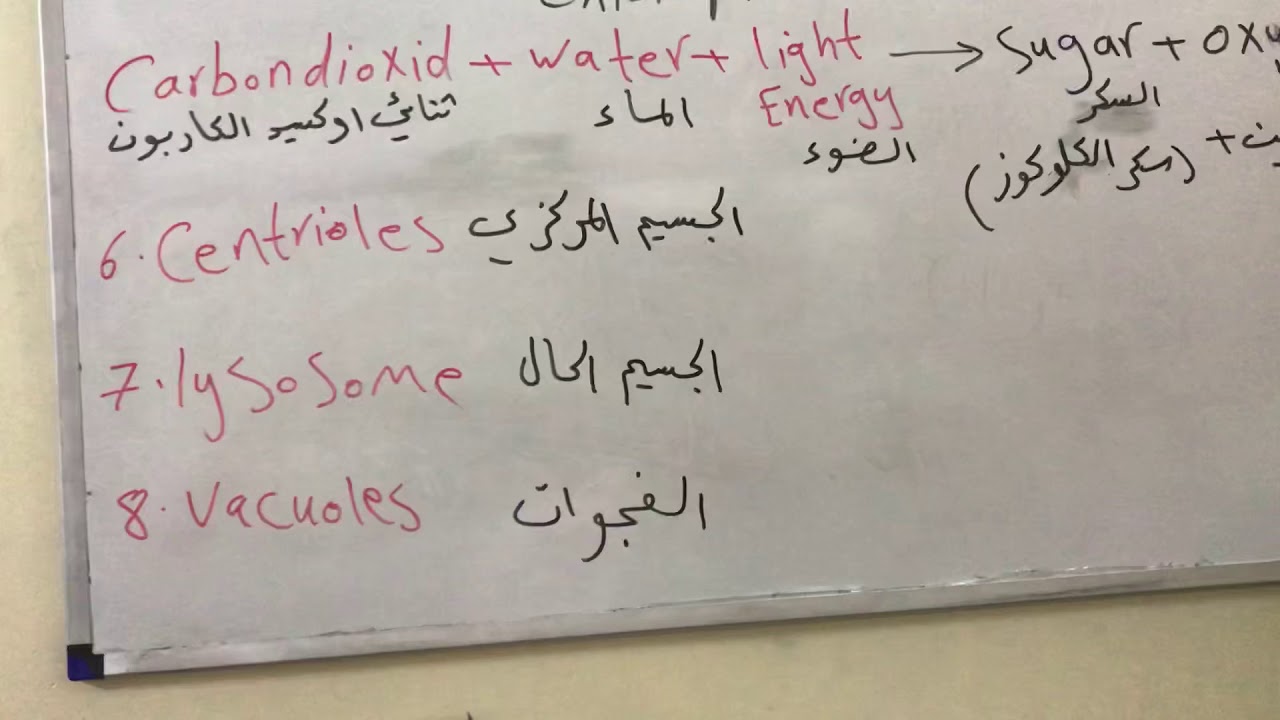 Carbondioxid + water + light → Sugar + oxy
ثنائي اوكسيد الكاربون الماء Energy السكر
الضوء (سكر الكلوكوز) +
6. Centrioles الجسيم المركزي
7. lysosome الجسيم الحال
8. Vacuoles الفجوات